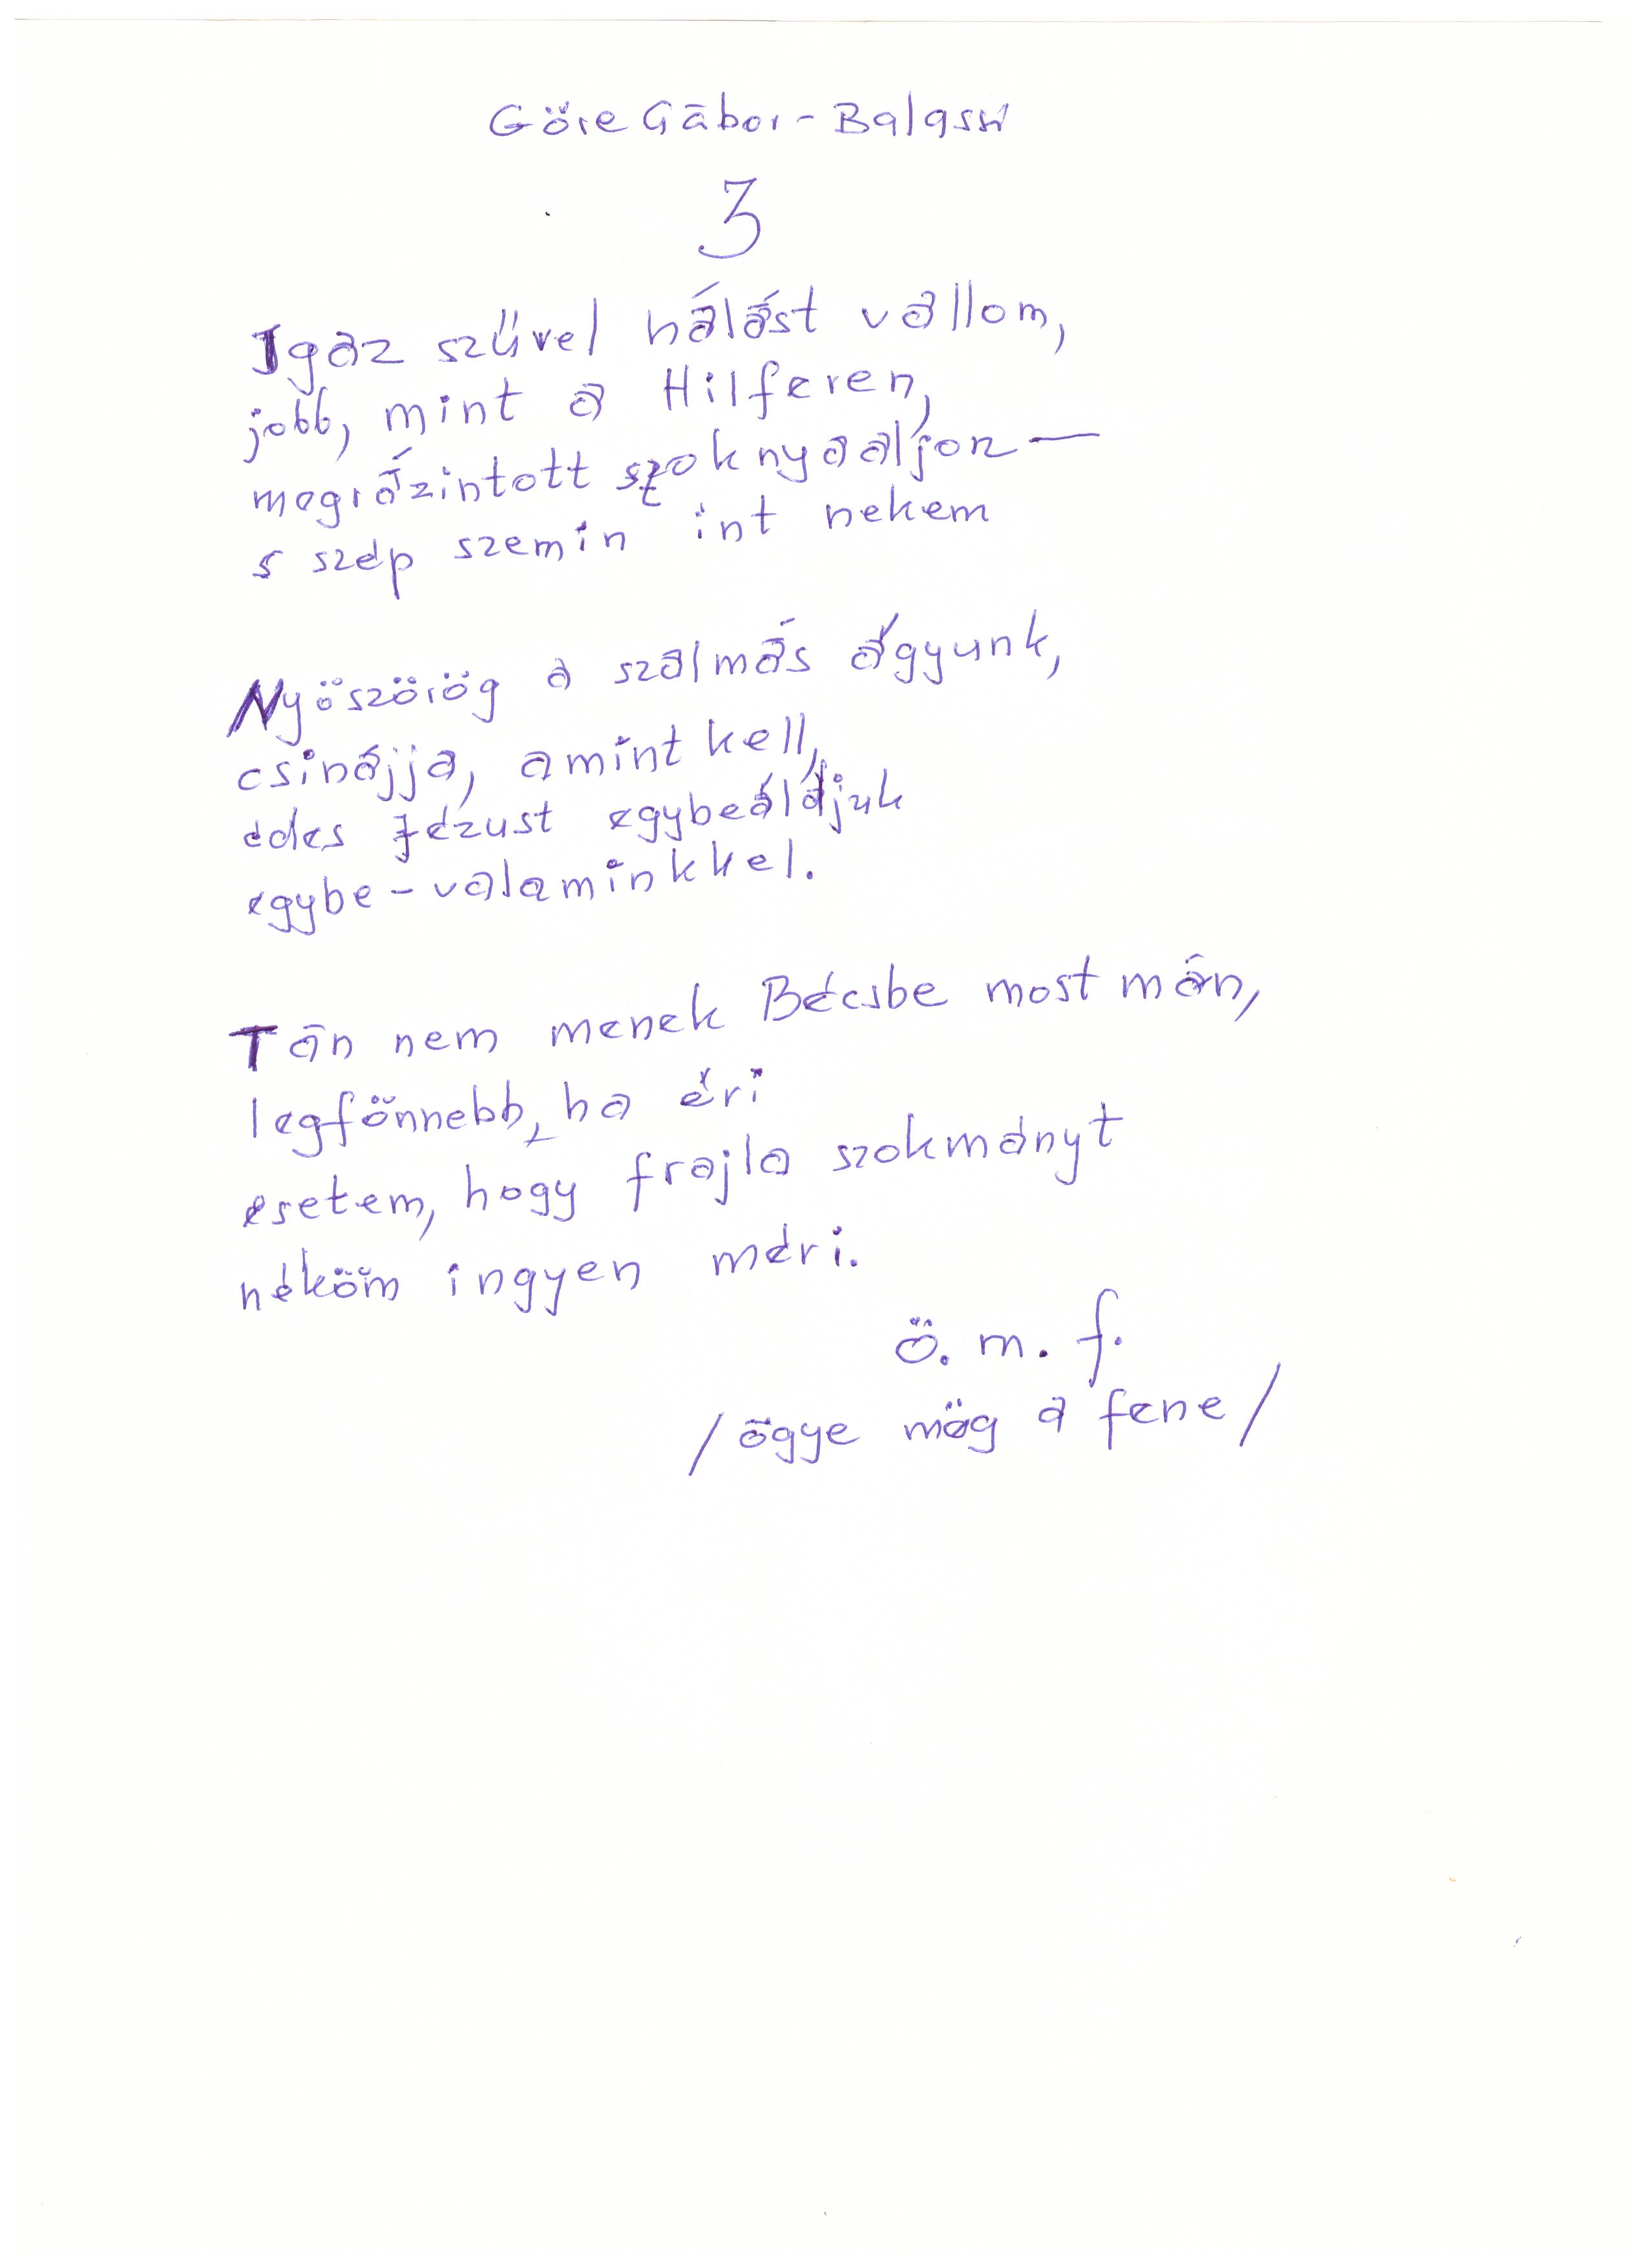 Göre Gábor - Balassi
3
Igaz szüvel hálást vallom,
jobb, mint a Hilferen,
megrázintott szoknyaaljon —
s szép szemin int nekem
Nyöszörög a szalmás ágyunk,
csinájja, amint kell,
édes Jézust egybeáldjuk
egybe - valaminkkel.
Tán nem menek Bécsbe most mán,
legfönnebb, ha éri
esetem, hogy frajla szokmányt
néköm ingyen méri.
ö. m. f.
/ögye mög a fene/